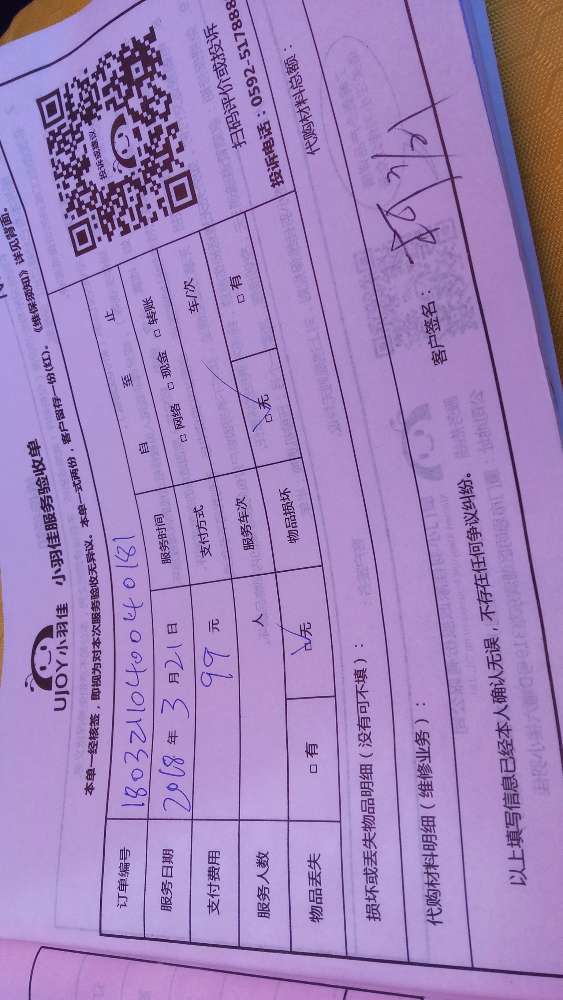 UJOY 小羽佳 小羽佳服务验收单
本单一经核签，即视为对本次服务验收无异议。本单一式两份，客户留存一份(红)。《维保须知》详见背面。
订单编号 180321040040181
服务日期 2018 年 3 月 21 日 服务时间 自 至 止
支付费用 99 元 支付方式 □ 网络 □ 现金 □ 转账
服务人数 人 服务车次 车/次
物品丢失 □ 有 □ 无 物品损坏 □ 无 □ 有
投诉或建议
扫码评价或投诉
投诉电话：0592-517888
损坏或丢失物品明细（没有可不填）：
代购材料明细（维修业务）： 代购材料总额：
以上填写信息已经本人确认无误，不存在任何争议纠纷。
客户签名： 3/21